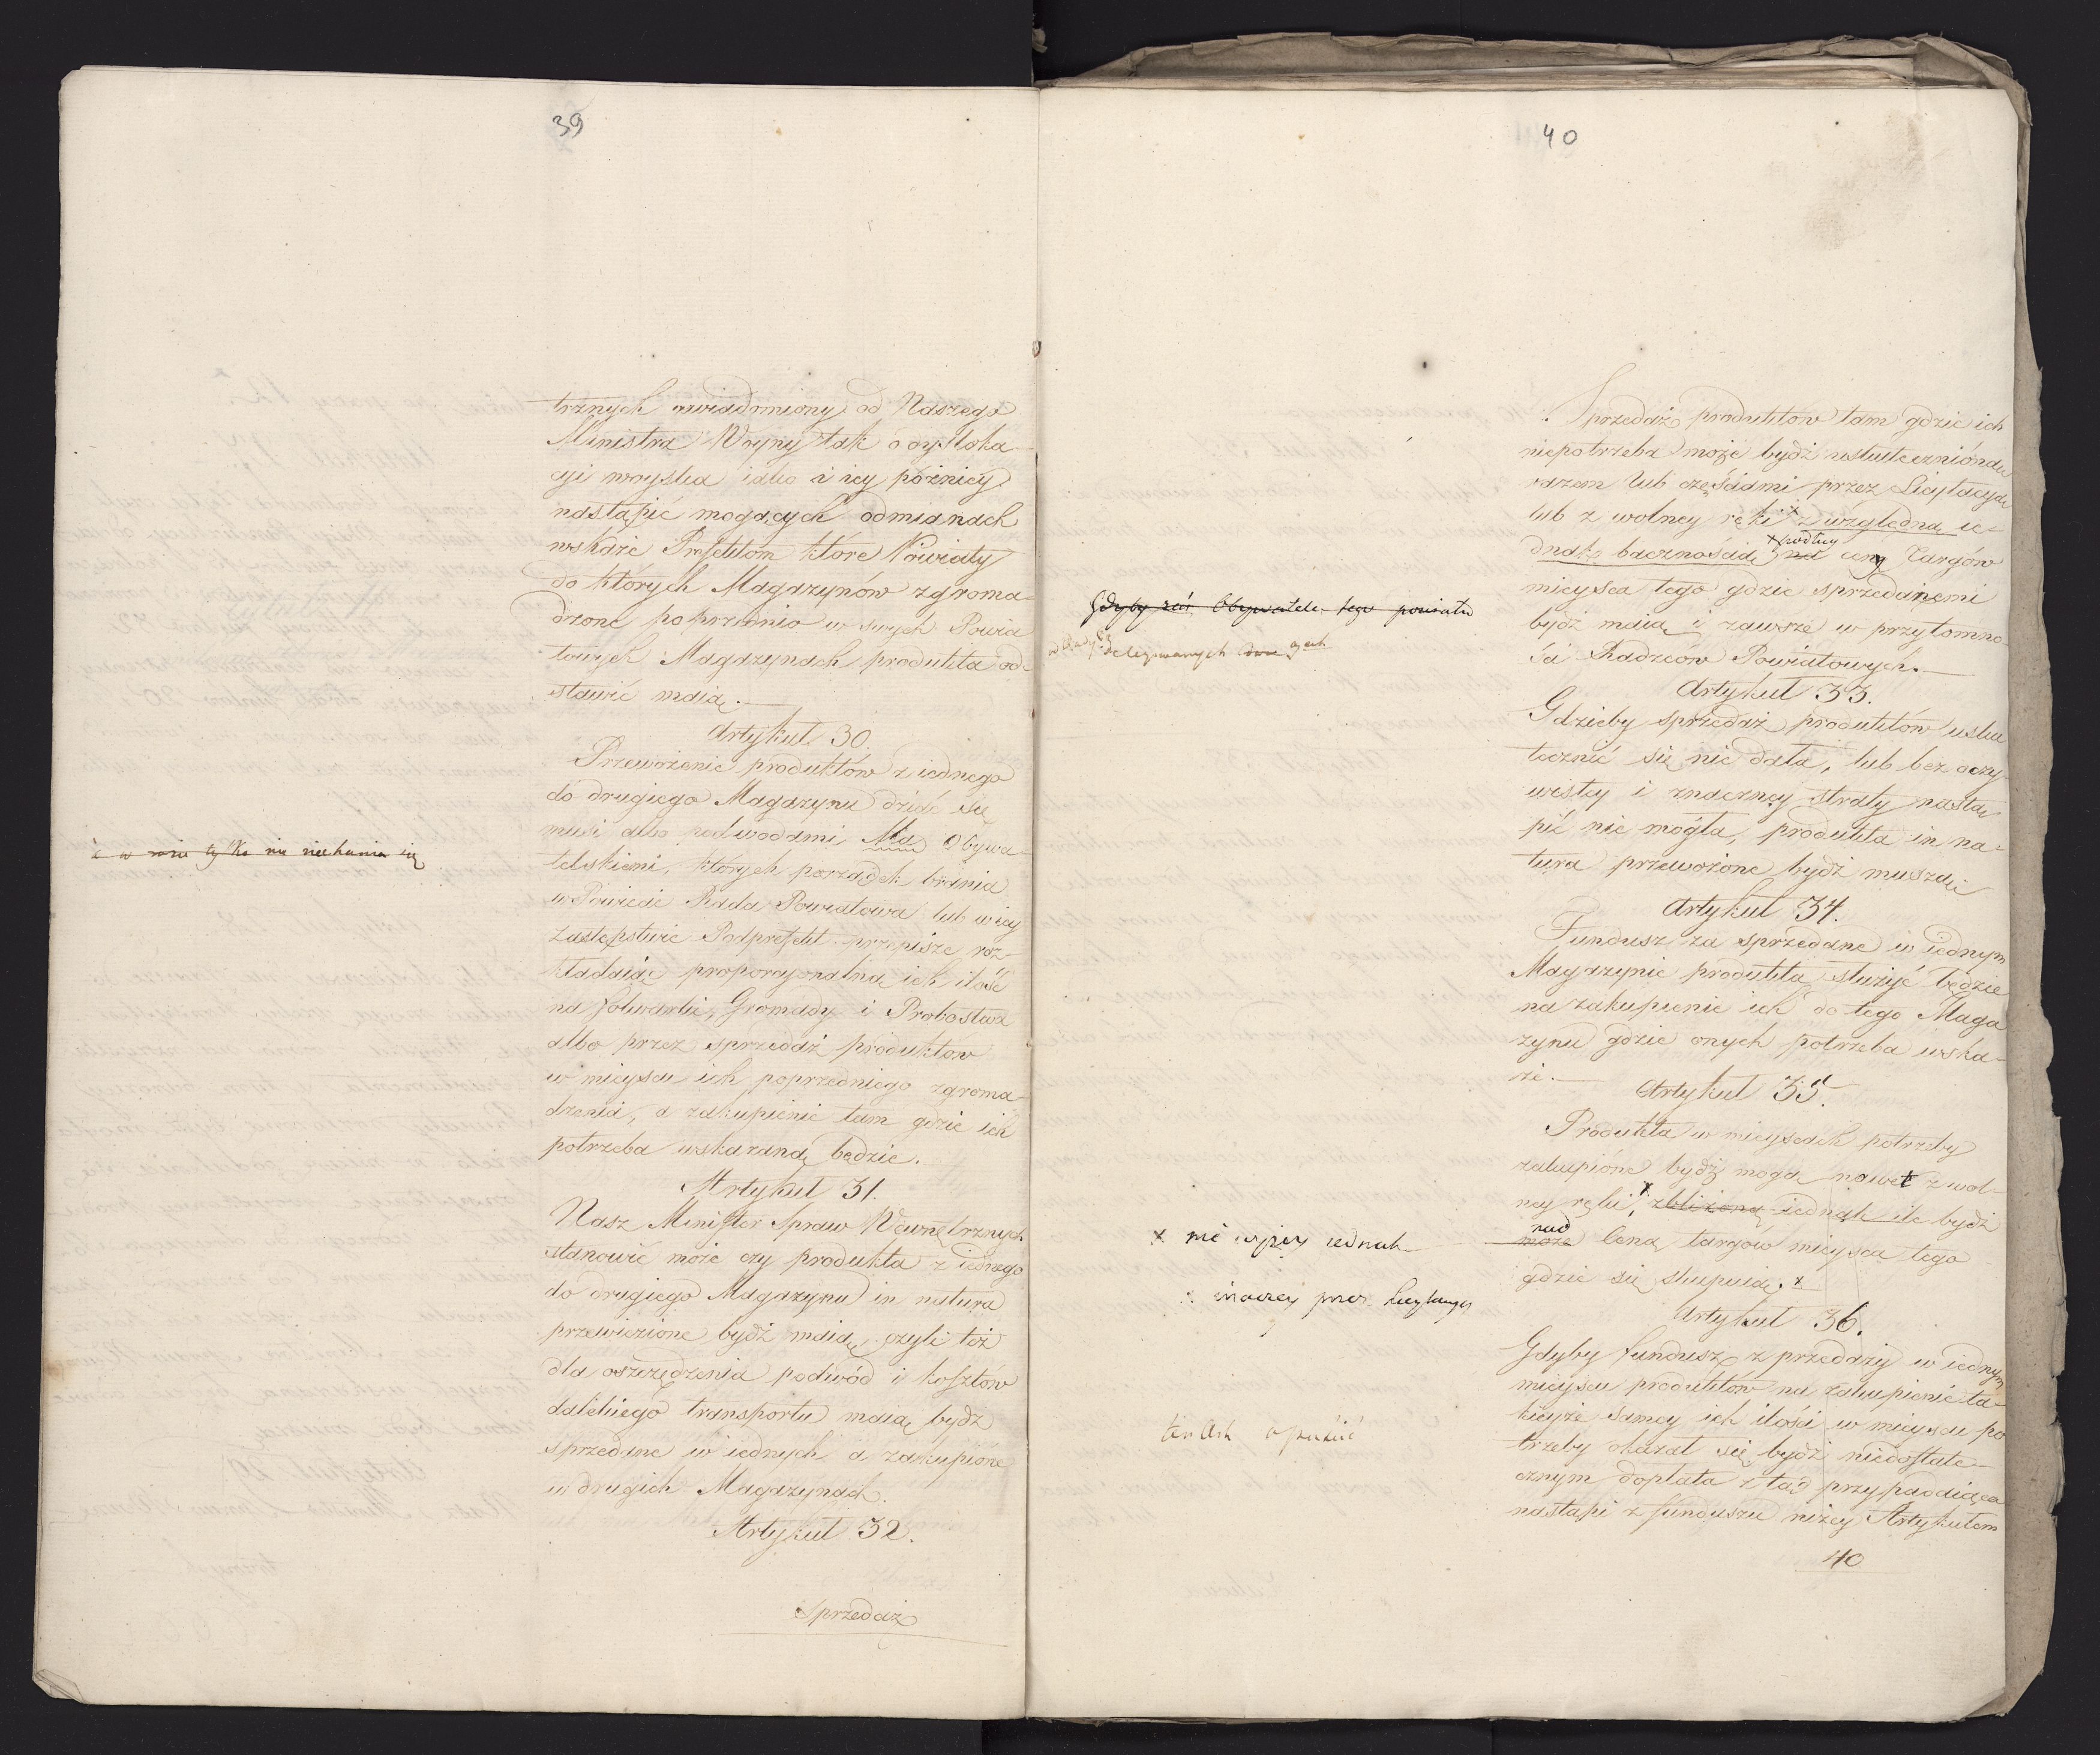 39
trznych uwiadomiony od Naszego
Ministra Woyny tak o dysloka-
cyi woyska iako i iey poźniey
nastąpić mogących odmianach
wskaże Prefektom które Powiaty
do których Magazynów zgroma-
dzone poprzednio w swych Powia
towych Magazynach produkta od-
stawić maią.
Artykuł 30.
Przewożenie produktów z iednego
do drugiego Magazynu dziać się
musi albo podwodami, Obywa-
telskiemi, których porządek brania
w Powiecie Rada Powiatowa lub w iey
Zastępstwie Podprefekt przepisze roz-
kładaiąc proporcyonalną ich ilość
na folwarki, Gromady i Probostwa
albo przez sprzedaż produktów
w mieyscu ich poprzedniego zgroma-
dzenia, a zakupienie tam gdzie ich
potrzeba wskazaną będzie.
Artykuł 31.
Nasz Minister Spraw Wewnętrznych
stanowić może czy produkta z iednego
do drugiego Magazynu in natura
przewiezione bydź maią, czyli też
dla oszczędzenia podwód i kosztów
dalekiego transportu maią bydź
sprzedane w iednych a zakupione
w drugich Magazynach.
Artykuł 32.
Sprzedaż
40
Gdyby zaś Obywatele tego powiatu
delegowanych
x nie wyżey iednak
inaczey przez Licytacyą
ten Art opuścić
Sprzedaż produktów tam gdzie ich
niepotrzeba może bydź uskutecznioną
razem lub częściami przez Licytacyą
lub z wolney ręki z względną ie-
dnak bacznością na podług ceny Targów
mieysca tego gdzie sprzedanemi
bydź maią i zawsze w przytomno
ści Radzców Powiatowych.
Artykuł 33.
Gdzieby sprzedaż produktów usku
tecznić się nie dała, lub bez oczy-
wistey i znaczney straty nastą
pić nie mogła, produkta in na-
tura przewożone bydź muszą
Artykuł 34.
Fundusz za sprzedane w iednym
Magazynie produkta służyć będzie
na zakupienie ich do tego Maga
zynu gdzie onych potrzeba wska-
że.
Artykuł 35.
Produkta w mieyscach potrzeby
zakupione bydź mogą nawet z wol-
ney ręki, x zbliżoną iednak ile bydź
może nad Cenę targów mieysca tego
gdzie się skupuią. x
Artykuł 36.
Gdyby fundusz z przedaży w iednym
mieyscu produktów na zakupienie ta-
kieyże samey ich ilości w mieyscu po
trzeby okazał się bydź niedostate-
cznym dopłata ztąd przypadaiąca
nastąpi z funduszu niżey Artykułem
40